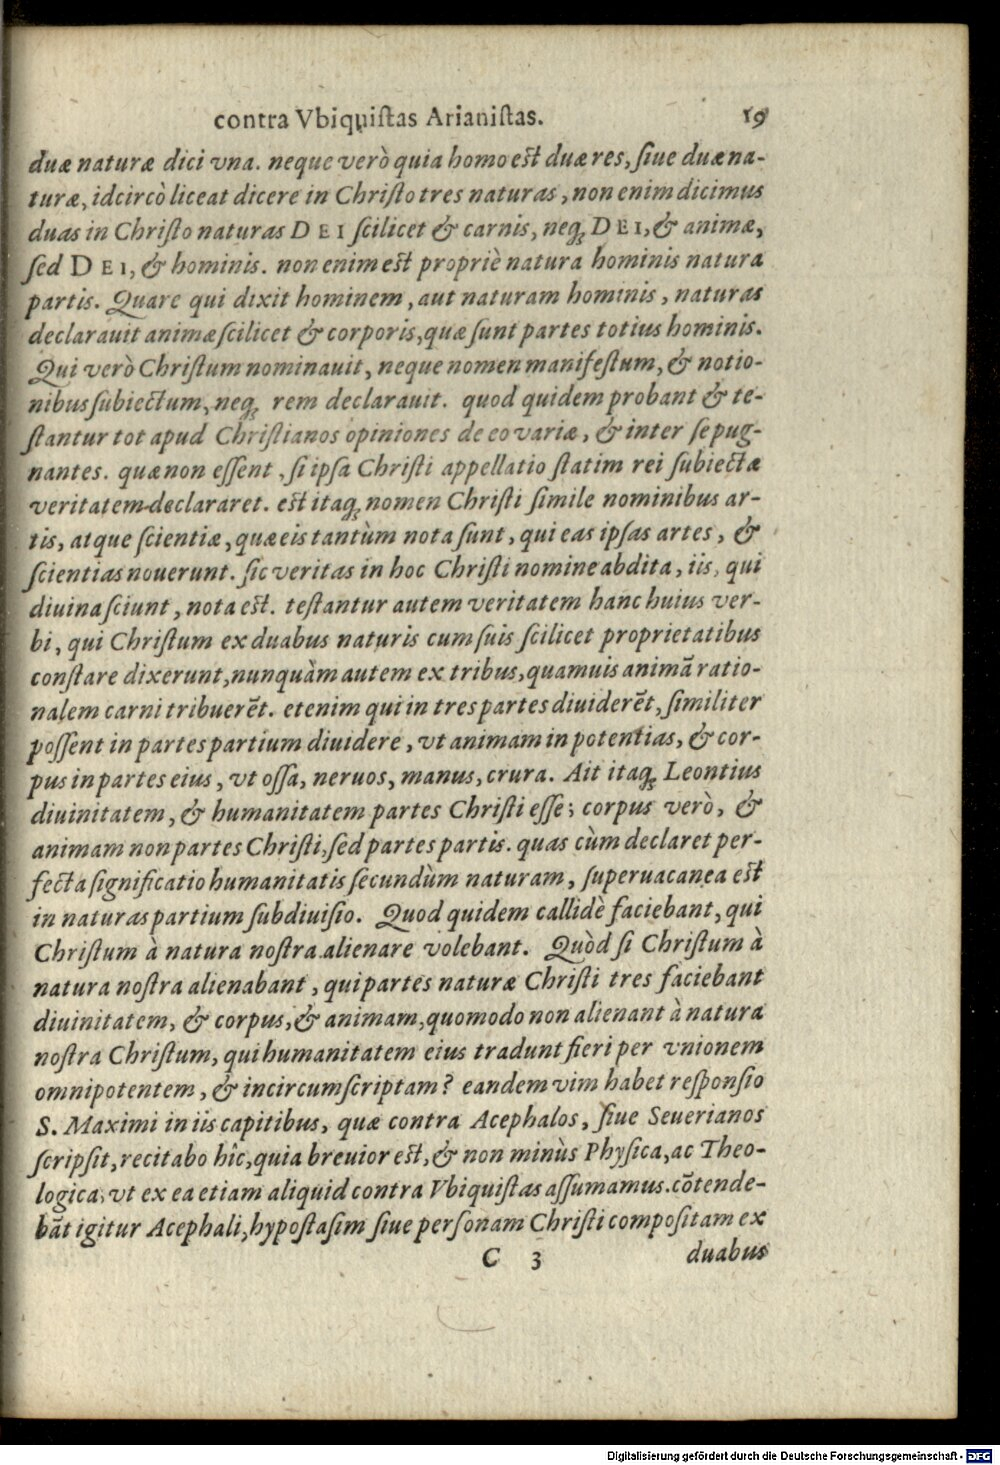 contra Vbiquiſtas Arianiſtas. 19
duæ naturæ dici vna. neque verò quia homo eſt duæ res, ſiue duæ na-
turæ, idcircò liceat dicere in Chriſto tres naturas, non enim dicimus
duas in Chriſto naturas DEI ſcilicet & carnis, neqꝫ DEI, & animæ,
ſed DEI, & hominis. non enim eſt propriè natura hominis natura
partis. Quare qui dixit hominem, aut naturam hominis, naturas
declarauit animæ ſcilicet & corporis, quæ ſunt partes totius hominis.
Qui verò Chriſtum nominauit, neque nomen manifeſtum, & notio-
nibus ſubiectum, neqꝫ rem declarauit. quod quidem probant & te-
ſtantur tot apud Chriſtianos opiniones de eo variæ, & inter ſe pug-
nantes. quæ non eſſent, ſi ipſa Chriſti appellatio ſtatim rei ſubiectæ
veritatem declararet. eſt itaqꝫ nomen Chriſti ſimile nominibus ar-
tis, atque ſcientiæ, quæ eis tantùm nota ſunt, qui eas ipſas artes, &
ſcientias nouerunt. ſic veritas in hoc Chriſti nomine abdita, iis, qui
diuina ſciunt, nota eſt. teſtantur autem veritatem hanc huius ver-
bi, qui Chriſtum ex duabus naturis cum ſuis ſcilicet proprietatibus
conſtare dixerunt, nunquàm autem ex tribus, quamuis animā ratio-
nalem carni tribuerēt. etenim qui in tres partes diuiderēt, ſimiliter
poſſent in partes partium diuidere, vt animam in potentias, & cor-
pus in partes eius, vt oſſa, neruos, manus, crura. Ait itaqꝫ Leontius
diuinitatem, & humanitatem partes Chriſti eſſe; corpus verò, &
animam non partes Chriſti, ſed partes partis. quas cùm declaret per-
fecta ſignificatio humanitatis ſecundùm naturam, ſuperuacanea eſt
in naturas partium ſubdiuiſio. Quod quidem callidè faciebant, qui
Chriſtum à natura noſtra alienare volebant. Quòd ſi Chriſtum à
natura noſtra alienabant, qui partes naturæ Chriſti tres faciebant
diuinitatem, & corpus, & animam, quomodo non alienant à natura
noſtra Chriſtum, qui humanitatem eius tradunt fieri per vnionem
omnipotentem, & incircumſcriptam? eandem vim habet reſponſio
S. Maximi in iis capitibus, quæ contra Acephalos, ſiue Seuerianos
ſcripſit, recitabo hîc, quia breuior eſt, & non minùs Phyſica, ac Theo-
logica, vt ex ea etiam aliquid contra Vbiquiſtas aſſumamus. cōtende-
bāt igitur Acephali, hypoſtaſim ſiue perſonam Chriſti compoſitam ex
C 3 duabus
Digitalisierung gefördert durch die Deutsche Forschungsgemeinschaft - DFG